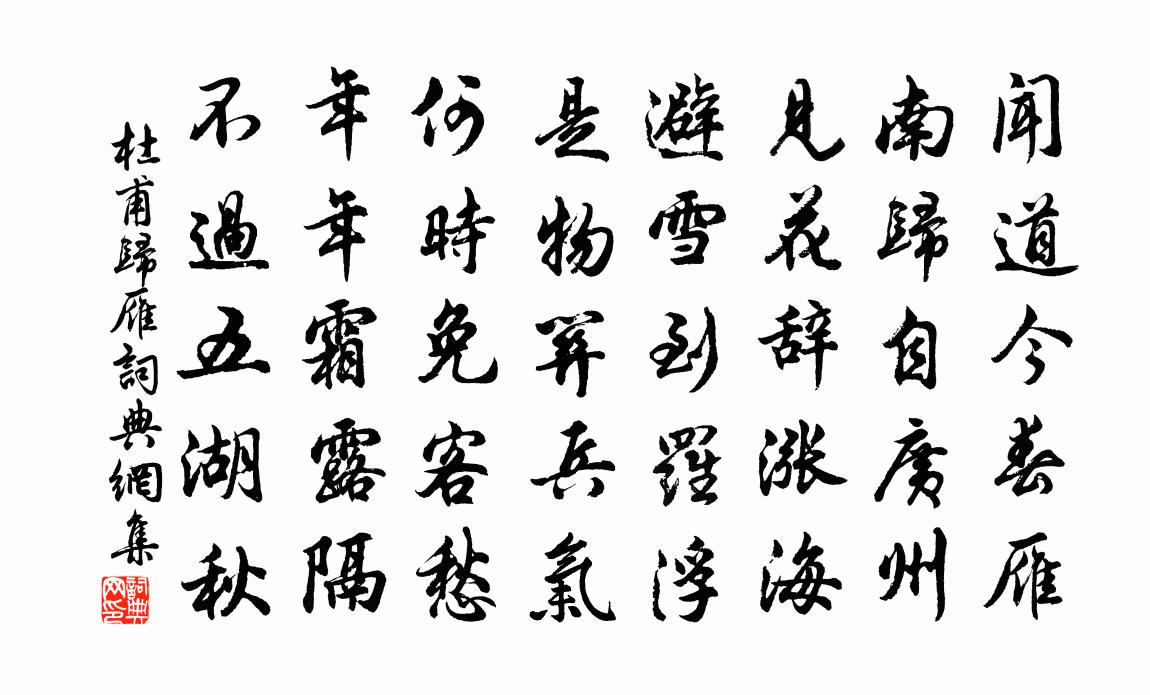 聞道今春雁
南歸自廣州
見花辞漲海
避雪到羅浮
是物關兵氣
何時免客愁
年年霜露隔
不過五湖秋
杜甫歸雁詞典網集
詞典网印